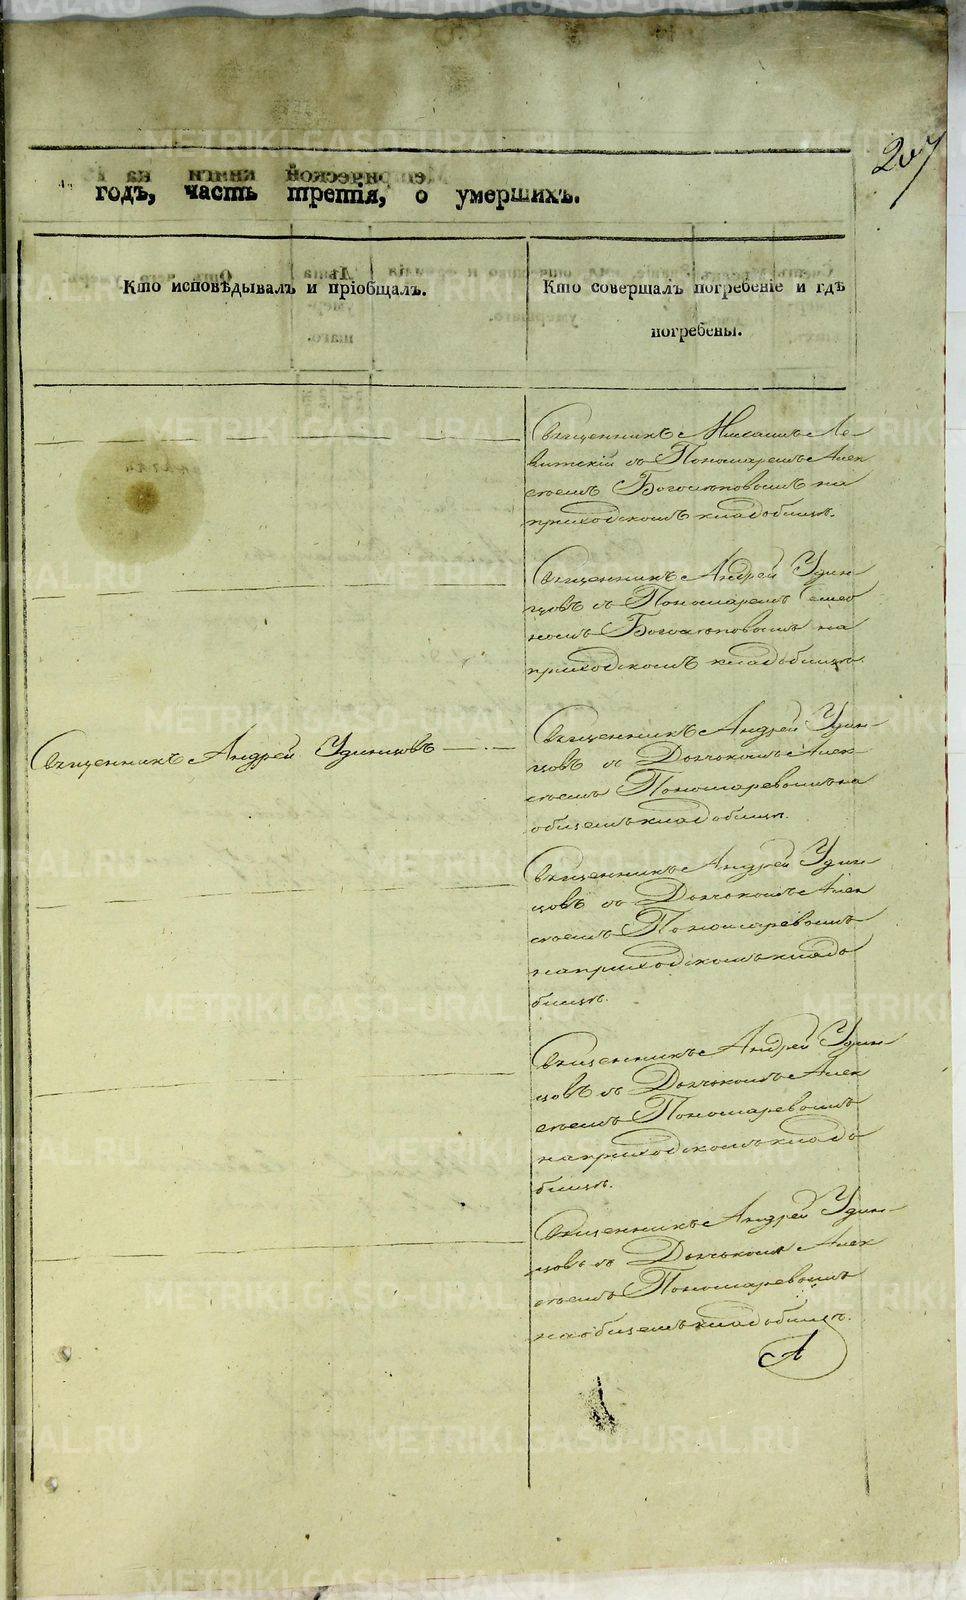 207
годъ, часть третія, о умершихъ.
Кто исповѣдывалъ и пріобщалъ.
Кто совершалъ погребеніе и гдѣ
погребены.
Священникъ Михаилъ Ле-
витскій съ Пономаремъ Алек
сѣемъ Богомѣповымъ на
приходскомъ кладбищѣ.
Священникъ Андрей Удин-
цовъ съ Пономаремъ Семео
номъ на
приходскомъ кладбищѣ.
Священникъ Андрей Удинцовъ
Священникъ Андрей Удин-
цовъ съ Дьячкомъ Алек-
сѣемъ Пономаревымъ на
общемъ кладбищѣ.
Священникъ Андрей Удин-
цовъ съ Дьячкомъ Алек
сѣемъ Пономаревымъ
на приходскомъ кладо
бищѣ.
Священникъ Андрей Удин-
цовъ съ Дьячкомъ Алек
сѣемъ Пономаревымъ
на приходскомъ кладо
бищѣ.
Священникъ Андрей Удин-
цовъ съ Дьячкомъ Алек
сѣемъ Пономаревымъ
на общемъ кладобищѣ.
METRIKI.GASO-URAL.RU